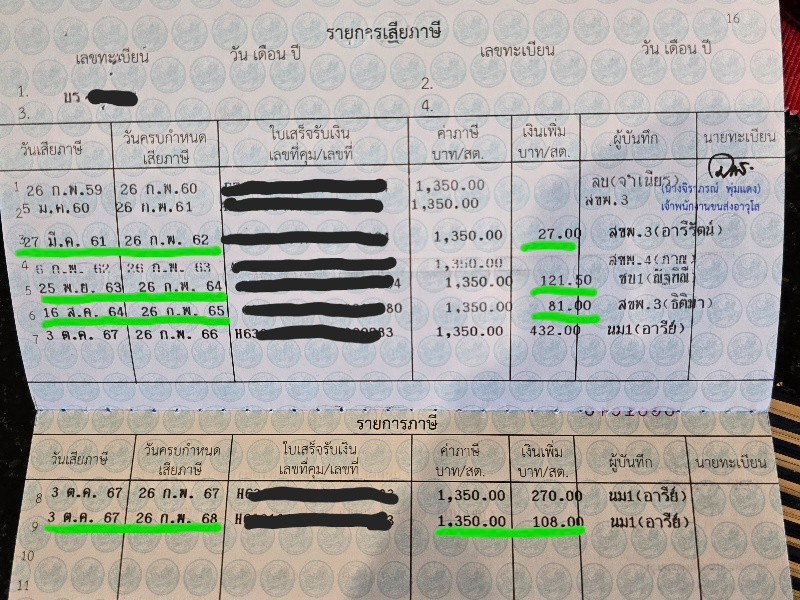 16
รายการเสียภาษี
เลขทะเบียน วัน เดือน ปี เลขทะเบียน วัน เดือน ปี
1. บร 2.
3. 4.
วันเสียภาษี วันครบกำหนดเสียภาษี ใบเสร็จรับเงิน เลขที่คุม/เลขที่ ค่าภาษี บาท/สต. เงินเพิ่ม บาท/สต. ผู้บันทึก นายทะเบียน
1 26 ก.พ.59 26 ก.พ.60 1,350.00 ลบ(จำเนียร)
(นางจิราภรณ์ พุ่มแดง)
2 5 ม.ค.60 26 ก.พ.61 1,350.00 สขพ.3 เจ้าพนักงานขนส่งอาวุโส
3 27 มี.ค. 61 26 ก.พ. 62 1,350.00 27.00 สขพ.3(อารีรัตน์)
4 6 ก.พ. 62 26 ก.พ. 63 1,350.00 สขพ.4(ภาณ)
5 25 พ.ย. 63 26 ก.พ. 64 4 1,350.00 121.50 ชบ1
6 16 ส.ค. 64 26 ก.พ. 65 80 1,350.00 81.00 สขพ.3(ธิติมา)
7 3 ต.ค. 67 26 ก.พ. 66 1,350.00 432.00 นม1(อารีย์)
รายการภาษี
วันเสียภาษี วันครบกำหนดเสียภาษี ใบเสร็จรับเงิน เลขที่คุม/เลขที่ ค่าภาษี บาท/สต. เงินเพิ่ม บาท/สต. ผู้บันทึก นายทะเบียน
8 3 ต.ค. 67 26 ก.พ. 67 1,350.00 270.00 นม1(อารีย์)
9 3 ต.ค. 67 26 ก.พ. 68 1,350.00 108.00 นม1(อารีย์)
10
11